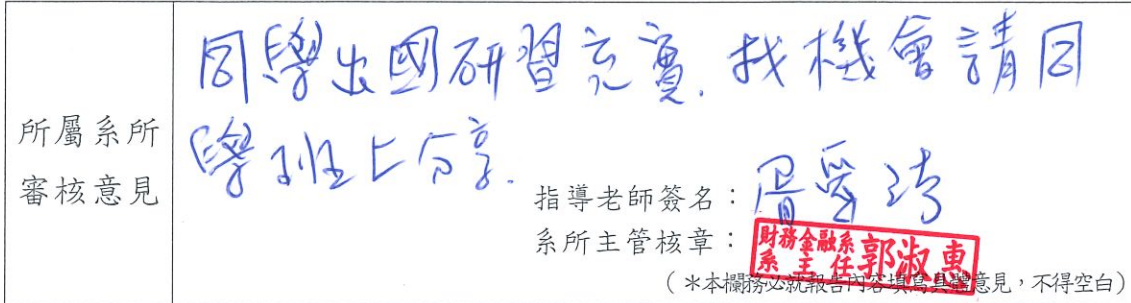 所屬系所
審核意見
同學出國研習充實. 找機會請同
學班上分享.
指導老師簽名：
系所主管核章：
財務金融系
系主任
郭淑惠
（＊本欄務必就報告內容填寫具體意見，不得空白）